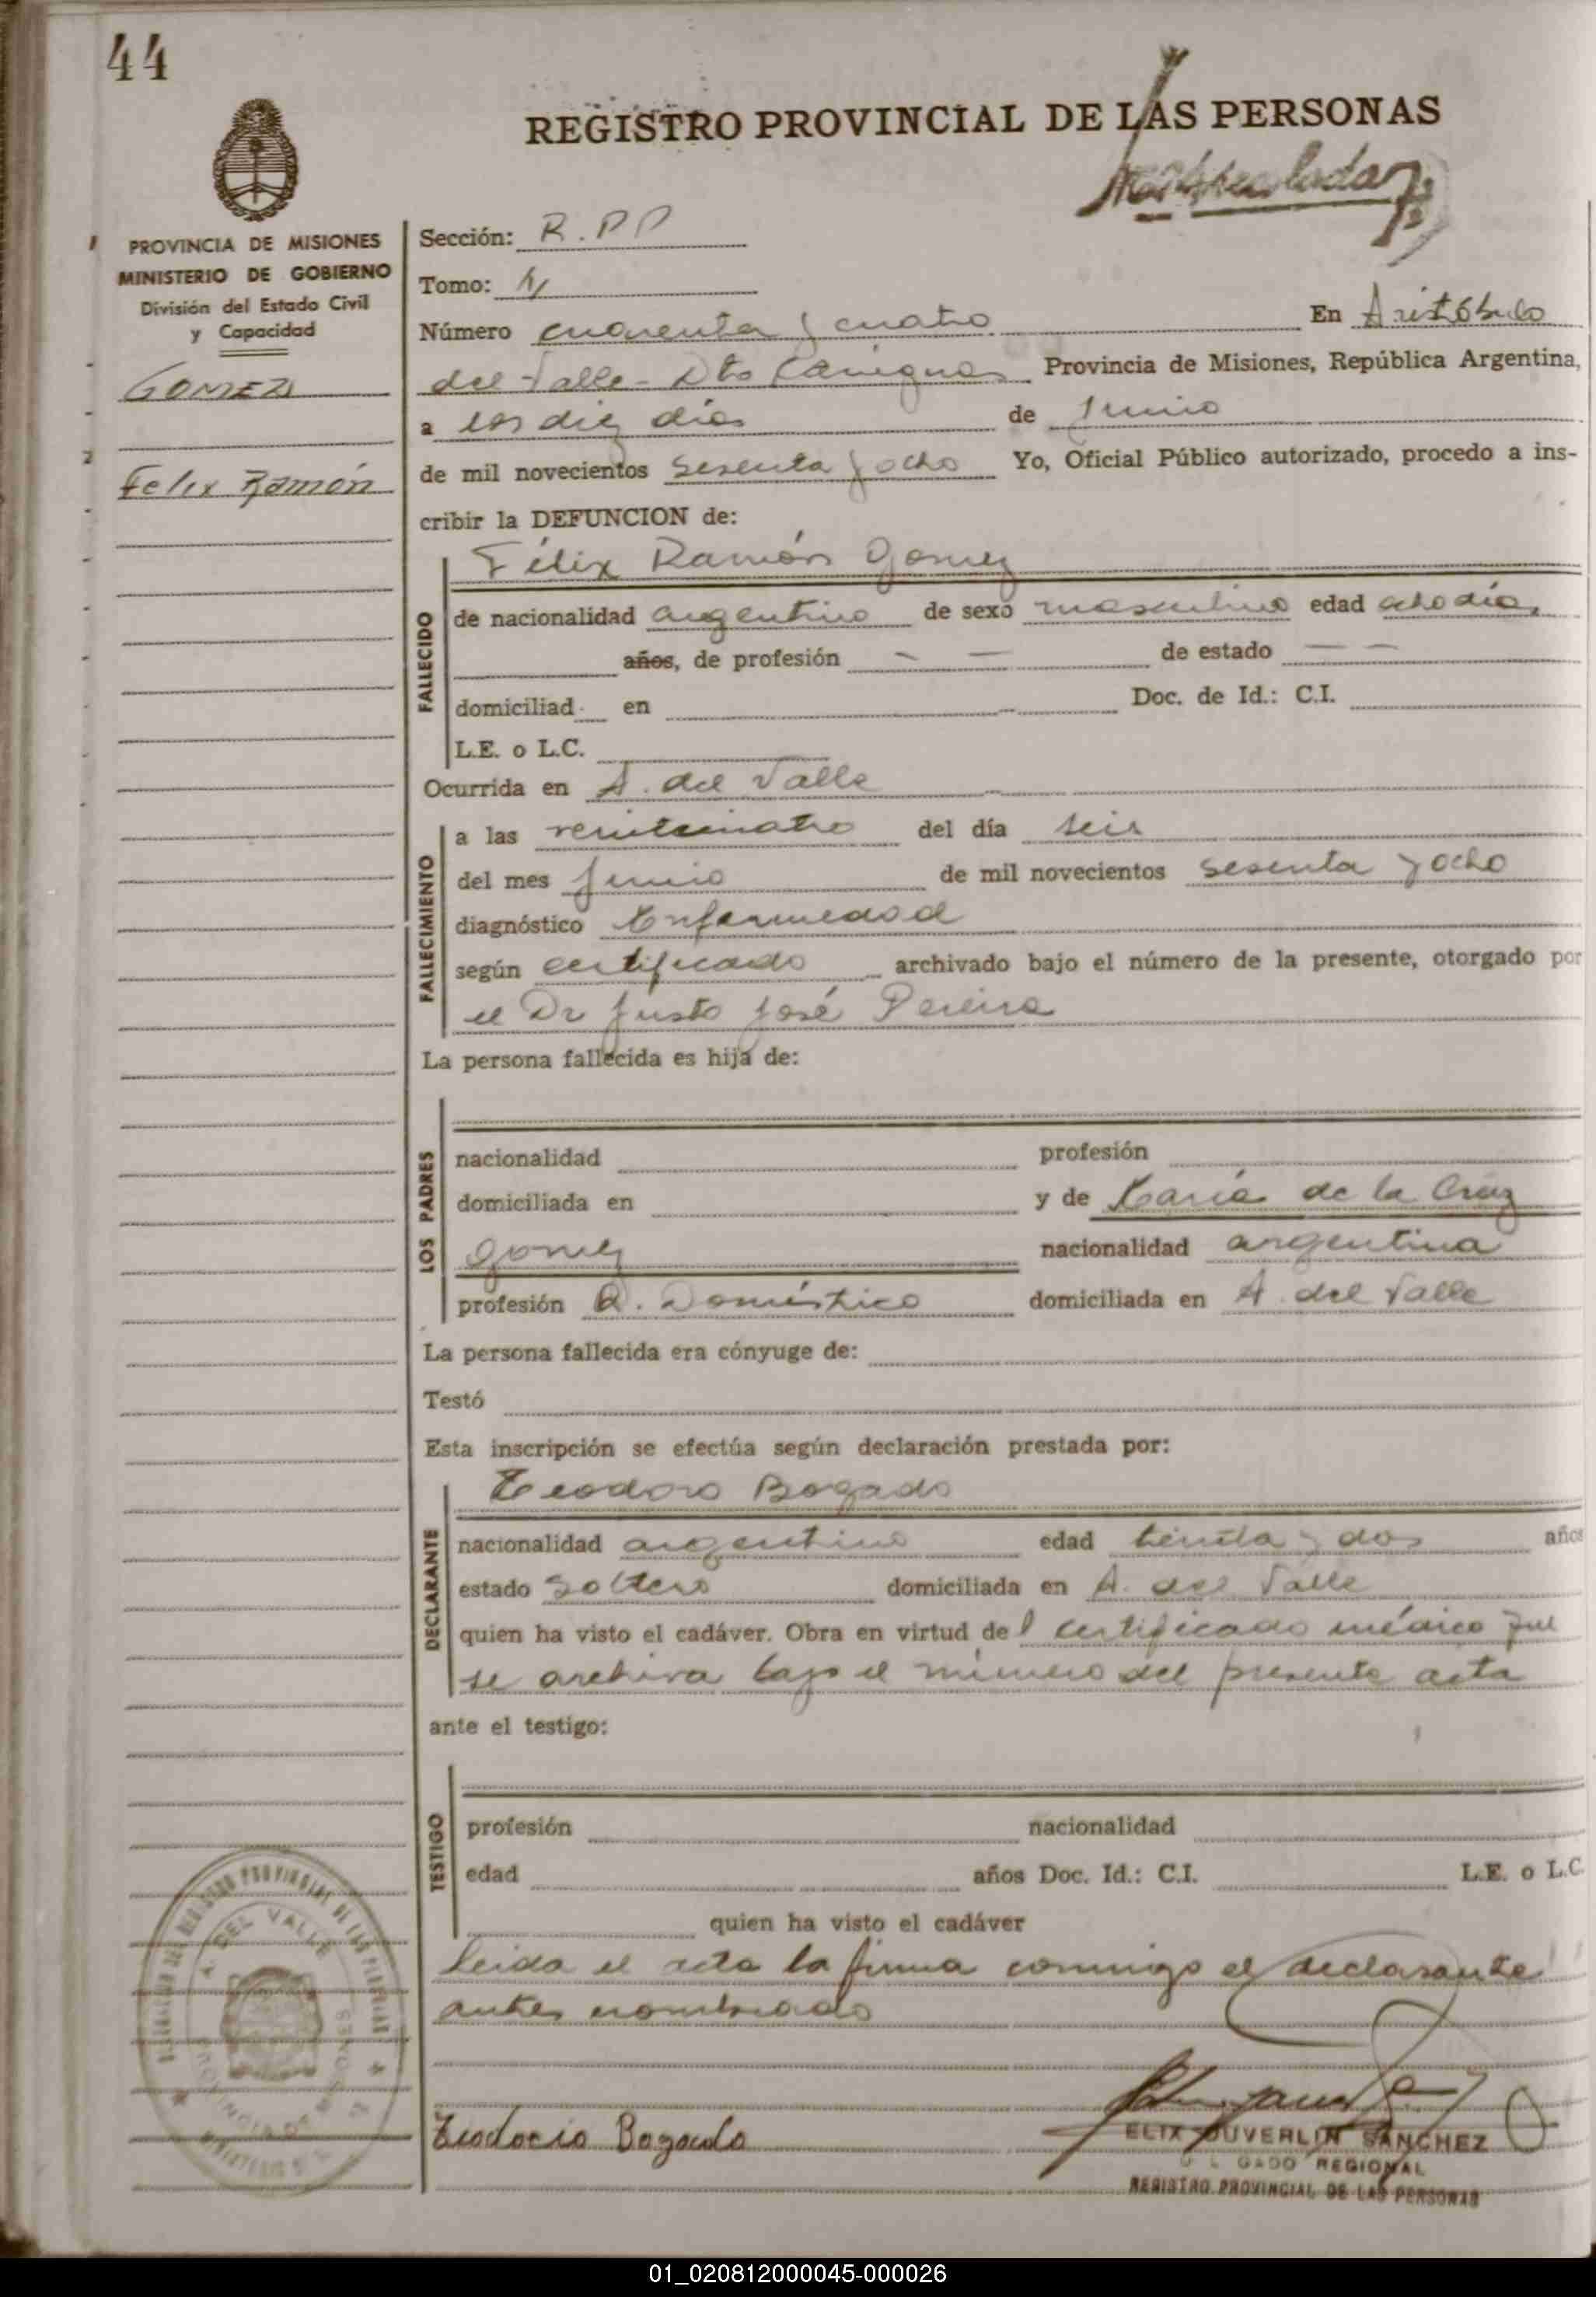 44
REGISTRO PROVINCIAL DE LAS PERSONAS
PROVINCIA DE MISIONES
MINISTERIO DE GOBIERNO
División del Estado Civil
y Capacidad
GOMEZ
Felix Ramón
Sección: R.PP
Tomo: 1
Número cuarenta y cuatro En Aristóbulo
del Valle - Dto Cainguas Provincia de Misiones, República Argentina,
a los diez días de Junio
de mil novecientos sesenta y ocho Yo, Oficial Público autorizado, procedo a ins-
cribir la DEFUNCION de:
Félix Ramón Gomez
FALLECIDO
de nacionalidad argentino de sexo masculino edad ocho días
años, de profesión — — de estado — —
domiciliad en Doc. de Id.: C.I.
L.E. o L.C.
Ocurrida en A. del Valle
FALLECIMIENTO
a las veinticuatro del día seis
del mes junio de mil novecientos sesenta y ocho
diagnóstico Enfermedad
según certificado archivado bajo el número de la presente, otorgado por
el Dr Justo José Pereira
La persona fallecida es hija de:
LOS PADRES
nacionalidad profesión
domiciliada en y de María de la Cruz
Gomez nacionalidad argentina
profesión Q. Doméstico domiciliada en A. del Valle
La persona fallecida era cónyuge de:
Testó
Esta inscripción se efectúa según declaración prestada por:
Teodoro Bogado
DECLARANTE
nacionalidad argentino edad treinta y dos años
estado soltero domiciliada en A. del Valle
quien ha visto el cadáver. Obra en virtud del certificado médico que
se archiva bajo el número del presente acta
ante el testigo:
TESTIGO
profesión nacionalidad
edad años Doc. Id.: C.I. L.E. o L.C
quien ha visto el cadáver
Leida el acta la firma conmigo el declarante
antes nombrado
REGISTRO PROVINCIAL DE LAS PERSONAS
A. DEL VALLE
PROVINCIA DE MISIONES
Teodocio Bogado
ELIX DUVERLIN SANCHEZ
GADO REGIONAL
REGISTRO PROVINCIAL DE LAS PERSONAS
01_020812000045-000026